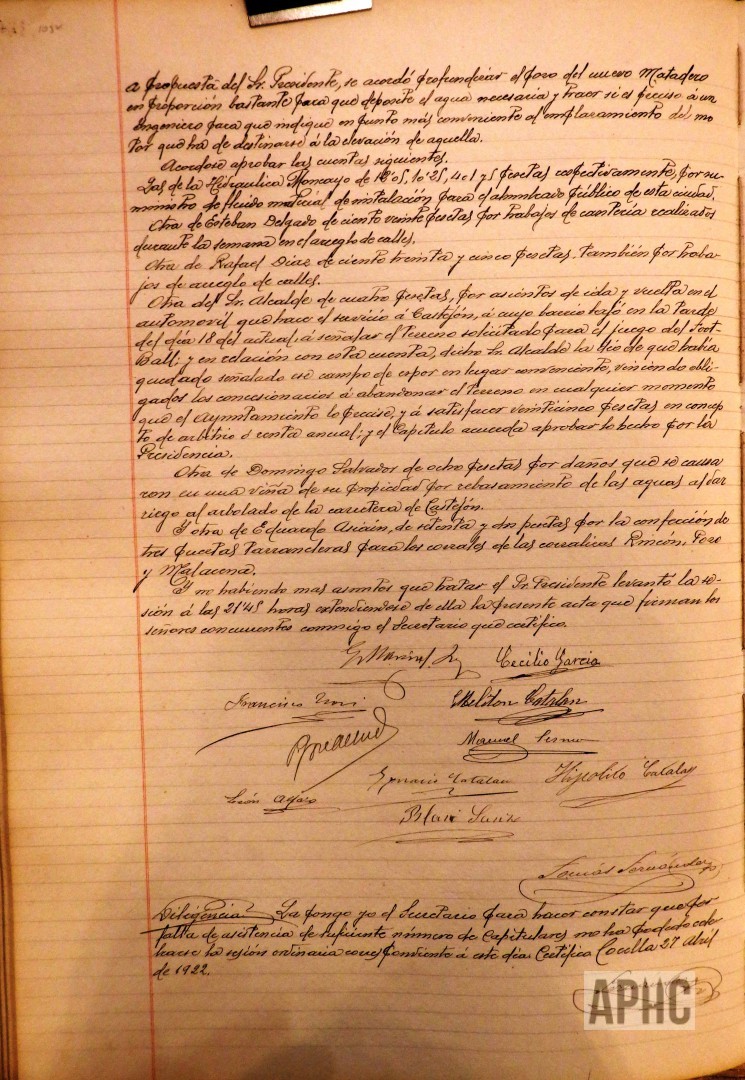 a propuesta del Sr. Presidente, se acordó profundizar el pozo del nuevo Matadero
en proporcion bastante para que deposite el agua necesaria y traer si es preciso á un
Ingeniero para que indique en punto más conveniente al emplazamiento del mo
tor que ha de destinarse á la elevación de aquella.
Acordose aprobar las cuentas siguientes.
Las de la Hidraulica Moncayo de 18'05, 10'25, 4 e 1 y 5 pesetas respectivamente, por su-
ministro de fluido material de instalación para el alumbrado público de esta ciudad.
Otra de Esteban Delgado de ciento veinte pesetas por trabajos de cantería realizados
durante la semana en el arreglo de calles.
Otra de Rafael Diaz de ciento treinta y cinco pesetas, también por traba-
jos de arreglo de calles.
Otra del Sr. Alcalde de cuatro pesetas, por asientos de ida y vuelta en el
automovil que hace el servicio á Castejón, á cuyo barrio bajó en la tarde
del día 18 del actual, á señalar el terreno solicitado para el juego del Foot-
Ball; y en relación con esta cuenta, dicho Sr. Alcalde la dió de que había
quedado señalado ese campo de espor en lugar conveniente, viniendo obli-
gados los concesionarios á abandonar el terreno en cualquier momento
que el Ayuntamiento lo precise, y á satisfacer veinticinco pesetas en concep
to de arbitrio ó renta anual; y el Capitulo acuerda aprobar lo hecho por la
Presidencia.
Otra de Domingo Salvador de ocho pesetas por daños que se causa
ron en una viña de su propiedad por rebasamiento de las aguas al dar
riego al arbolado de la carretera de Castejón.
Y otra de Eduardo Asiáin, de setenta y dos pesetas por la confección de
tres puertas tarrancleras para los corrales de las corralizas Rincón, Pozo
y Malacena.
Y no habiendo mas asuntos que tratar el Sr. Presidente levantó la se-
sión á las 21'45 horas extendiendose de ella la presente acta que firman los
señores concurrentes conmigo el Secretario que certifico.
Cecilio Garcia
Francisco
Meliton Catalan
Manuel
Ignacio Catalan
Hipolito Catalan
León Alfaro
Blas Sanz
Tomás Fernández
Diligencia. La pongo yo el Secretario para hacer constar que por
falta de asistencia de suficiente número de Capitulares no ha podido cele-
brarse la sesión ordinaria correspondiente á este día. Certifico Corella 27 Abril
de 1922.
APHC